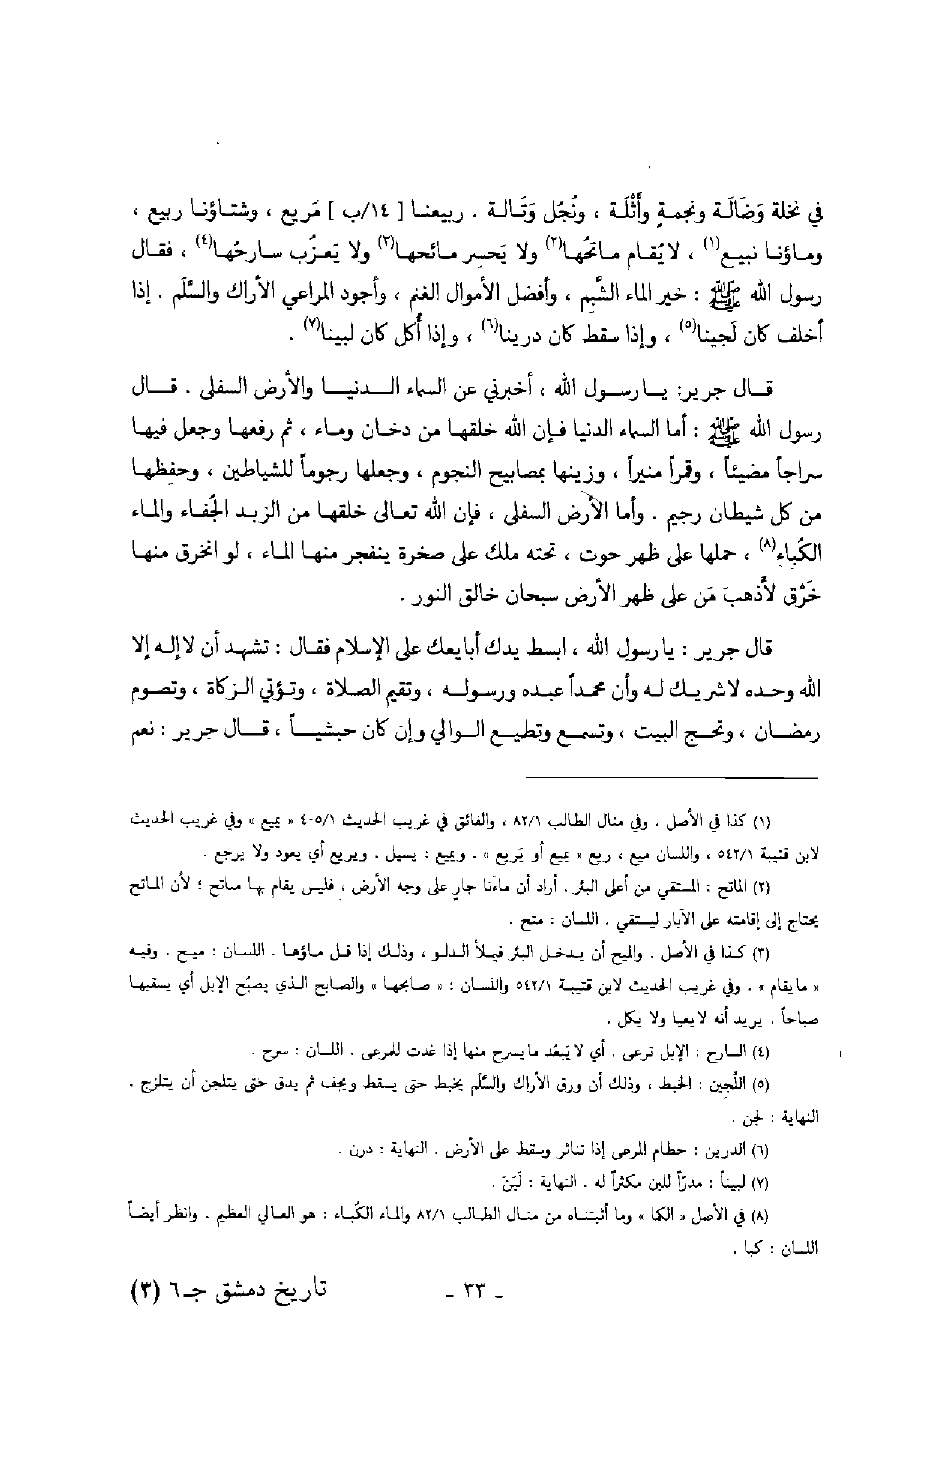 في نخلة وَضَالَة ونجمةٍ وأَثْلَة ، ونُجُل وَتَالة . ربيعنا [ ١٤/ب ] مَريع ، وشتاؤنا ربيع ،
وماؤنا نبيع(١) ، لا يُقام ماتحُها(٢) ولا يَحسِر مائحها(٣) ولا يَعزُب سارحُها(٤) ، فقال
رسول الله ﷺ : خير الماء الشَّبِم ، وأفضل الأموال الغنم ، وأجود المراعي الأراك والسَّلَم . إذا
أخلف كان لَجينا(٥) ، وإذا سقط كان درينا(٦) ، وإذا أُكل كان لبينا(٧) .
قال جرير: يا رسول الله ، أخبرني عن السماء الدنيا والأرض السفلى . قال
رسول الله ﷺ : أما السماء الدنيا فإن الله خلقها من دخان وماء ، ثم رفعها وجعل فيها
سراجاً مضيئاً ، وقمراً منيراً ، وزينها بمصابيح النجوم ، وجعلها رجوماً للشياطين ، وحفظها
من كل شيطان رجيم . وأما الأرض السفلى ، فإن الله تعالى خلقها من الزبد الجُفاء والماء
الكُباء(٨) ، حملها على ظهر حوت ، تحته ملك على صخرة ينفجر منها الماء ، لو انخرق منها
خَرْق لأَذهبَ مَن على ظهر الأرض سبحان خالق النور .
قال جرير : يا رسول الله ، ابسط يدك أبايعك على الإسلام فقال : تشهد أن لا إله إلا
الله وحده لا شريك له وأن محمداً عبده ورسوله ، وتقيم الصلاة ، وتؤتي الزكاة ، وتصوم
رمضان ، وتحج البيت ، وتسمع وتطيع الوالي وإن كان حبشياً ، قال جرير : نعم
(١) كذا في الأصل . وفي منال الطالب ٨٢/١ ، والفائق في غريب الحديث ٤٠٥/١ « يميع » وفي غريب الحديث
لابن قتيبة ٥٤٢/١ ، واللسان ميع ، ريع « يميع أو يَريع » . ويميع : يسيل . ويريع أي يعود ولا يرجع .
(٢) الماتح : المستقي من أعلى البئر . أراد أن ماءنا جارٍ على وجه الأرض ، فليس يقام بها ماتح ؛ لأن الماتح
يحتاج إلى إقامته على الآبار ليستقي . اللسان : متح .
(٣) كذا في الأصل . والميح أن يدخل البئر فيملأ الدلو ، وذلك إذا قل ماؤها . اللسان : ميح . وفيه
« ما يقام » . وفي غريب الحديث لابن قتيبة ٥٤٢/١ واللسان : « صابحها » والصابح الذي يصبّح الإبل أي يسقيها
صباحاً . يريد أنه لا يعيا ولا يكل .
(٤) السارح : الإبل ترعى . أي لا يَبعُد ما يسرح منها إذا غدت للمرعى . اللسان : سرح .
(٥) اللَّجين : الخبط ، وذلك أن ورق الأراك والسَّلَم يخبط حتى يسقط ويجف ثم يدق حتى يتلجن أن يتلزج .
النهاية : لجن .
(٦) الدرين : حطام المرعى إذا تناثر وسقط على الأرض . النهاية : درن .
(٧) لبيناً : مدرّاً للبن مكثراً له . النهاية : لَبَنَ .
(٨) في الأصل « الكا » وما أثبتناه من منال الطالب ٨٢/١ والماء الكُباء : هو العالي العظيم . وانظر أيضاً
اللسان : كبا .
ـ ٣٣ ـ تاريخ دمشق جـ٦ (٣)